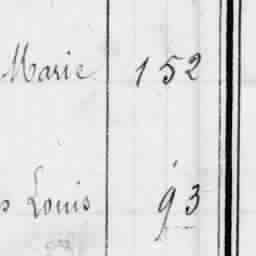 Marie 152
s Louis 93